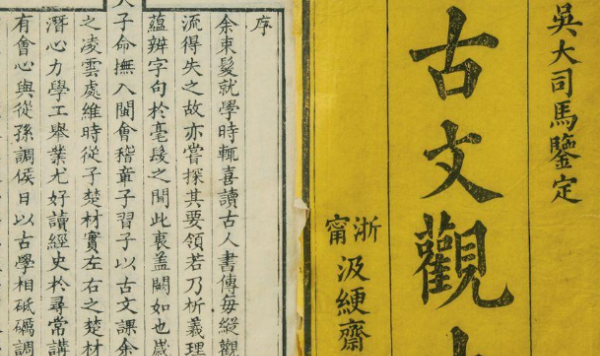 吳大司馬鑒定
古文觀
浙甯
汲綆齋
序
余束髮就學時輒喜讀古人書傳每縱觀
流得失之故亦嘗探其要領若乃析義理
蘊辨字句於毫髮之間此衷蓋闕如也歲
子命撫入閩會稽章子習子以古文課余
之凌雲處維時從子楚材實左右之楚材
潛心力學工舉業尤好讀經史於尋常講
有會心與從孫調侯日以古學相砥礪調